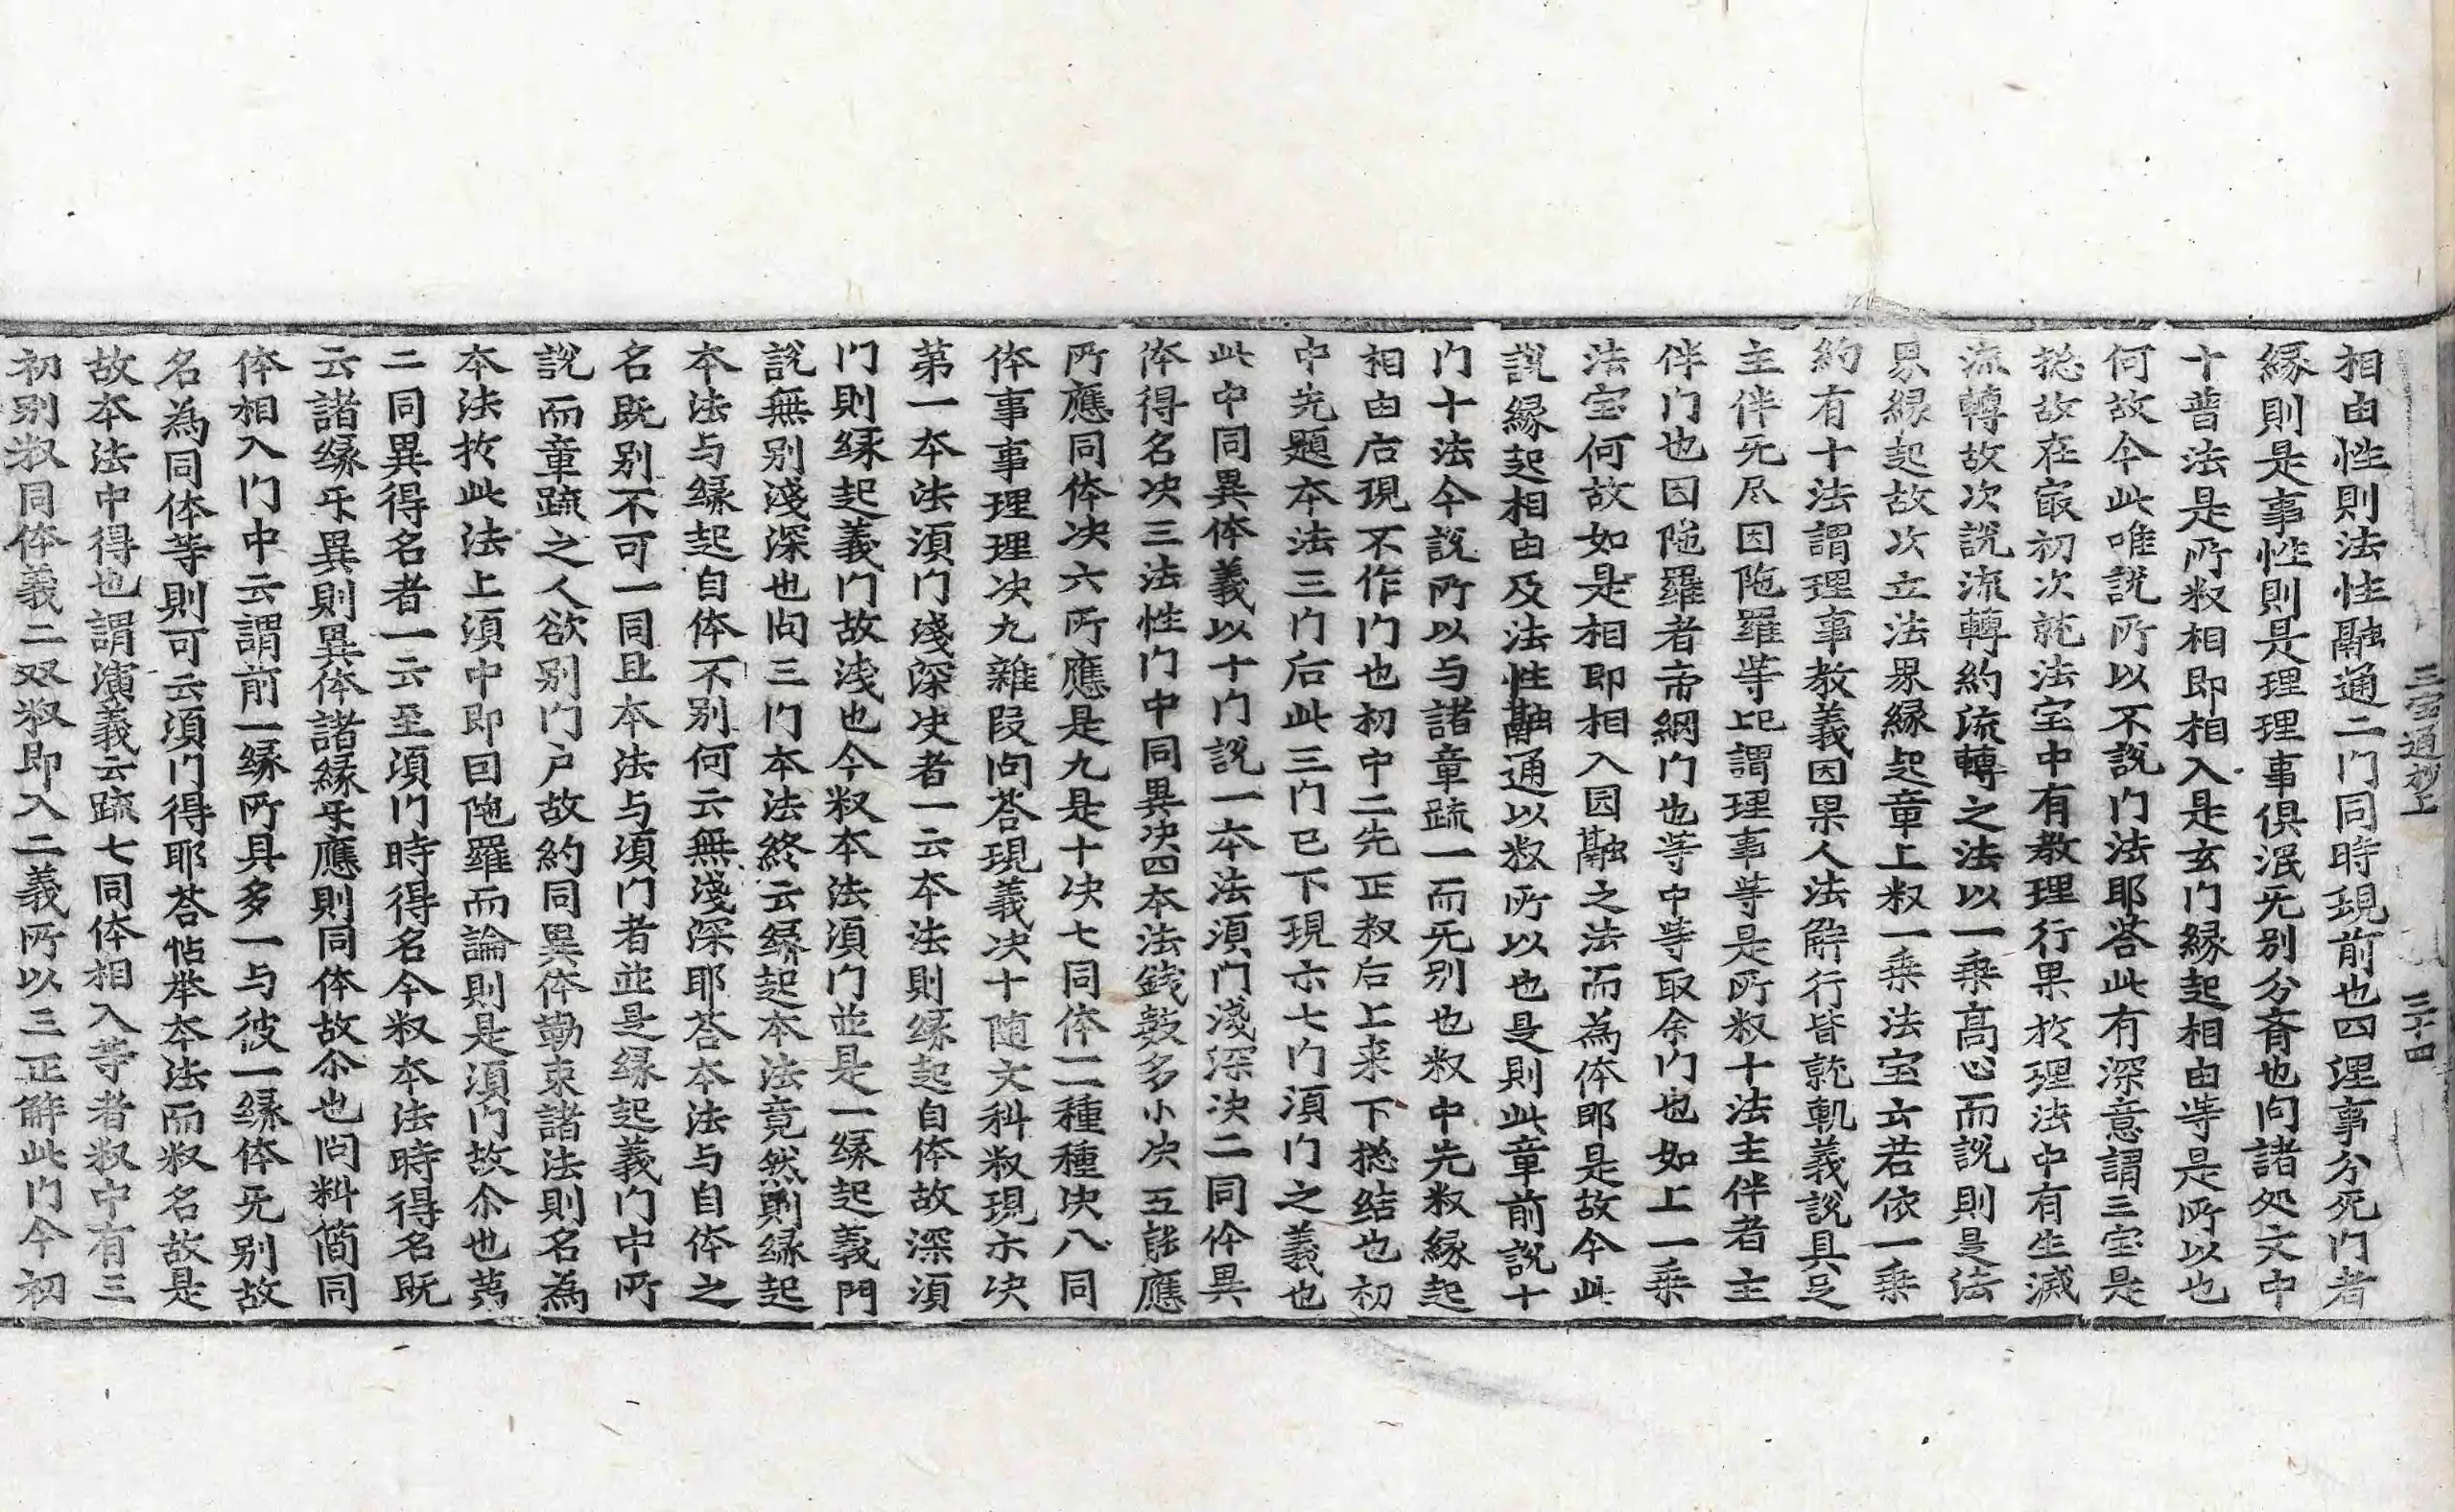 三宝通抄上　三十四
相由性則法性融通二门同時現前也四理事分死门者
緣則是事性則是理理事俱泯无别分斉也问諸处文中
十普法是所叙相即相入是玄门緣起相由等是所以也
何故今此唯説所以不説门法耶答此有深意謂三宝是
捴故在㝡初次就法宝中有教理行果於理法中有生滅
流轉故次説流轉約流轉之法以一乗髙心而説則是法
界緣起故次立法界緣起章上叙一乗法宝云若依一乗
約有十法謂理事教義因果人法解行皆乾軌義説具足
主伴无尽因陁羅等此謂理事等是所叙十法主伴者主
伴门也因陁羅者帝網门也等中等取余门也如上一乗
法宝何故如是相即相入因融之法而為体耶是故今此
説緣起相由及法性融通以叙所以也是則此章前説十
门十法今説所以与諸章䟽一而无别也叙中先叙緣起
相由后現不作门也初中二先正叙后上来下捴结也初
中先題本法三门后此三门已下現示七门湏门之義也
此中同異体義以十门説一本法湏门淺深决二同体異
体得名决三法性门中同異决四本法銭数多小决五能應
所應同体决六所應是九是十决七同体二種種决八同
体事事理理决九雜叚问荅現義决十随文科叙現示决
第一本法湏门淺深决者一云本法則緣起自体故深湏
门則緣起義门故淺也今叙本法湏门並是一緣起義門
説無别淺深也问三门本法終云緣起本法竟然則緣起
本法与緣起自体不别何云無淺深耶荅本法与自体之
名既别不可一同且本法与湏门者並是緣起義门中所
説而章䟽之人欲别门户故約同異体勒束諸法則名為
本法扵此法上湏中即因陁羅而論則是湏门故尒也苐
二同異得名者一云至湏门時得名今叙本法時得名既
云諸緣𠂕異則異体諸緣𠂕應則同体故尒也问料简同
体相入门中云謂前一緣所具多一与彼一緣体无别故
名為同体等則可云湏门得耶荅帖举本法而叙名故是
故本法中得也謂演義云䟽七同体相入等者叙中有三
初别叙同体義二双叙即入二義所以三正解此门今初